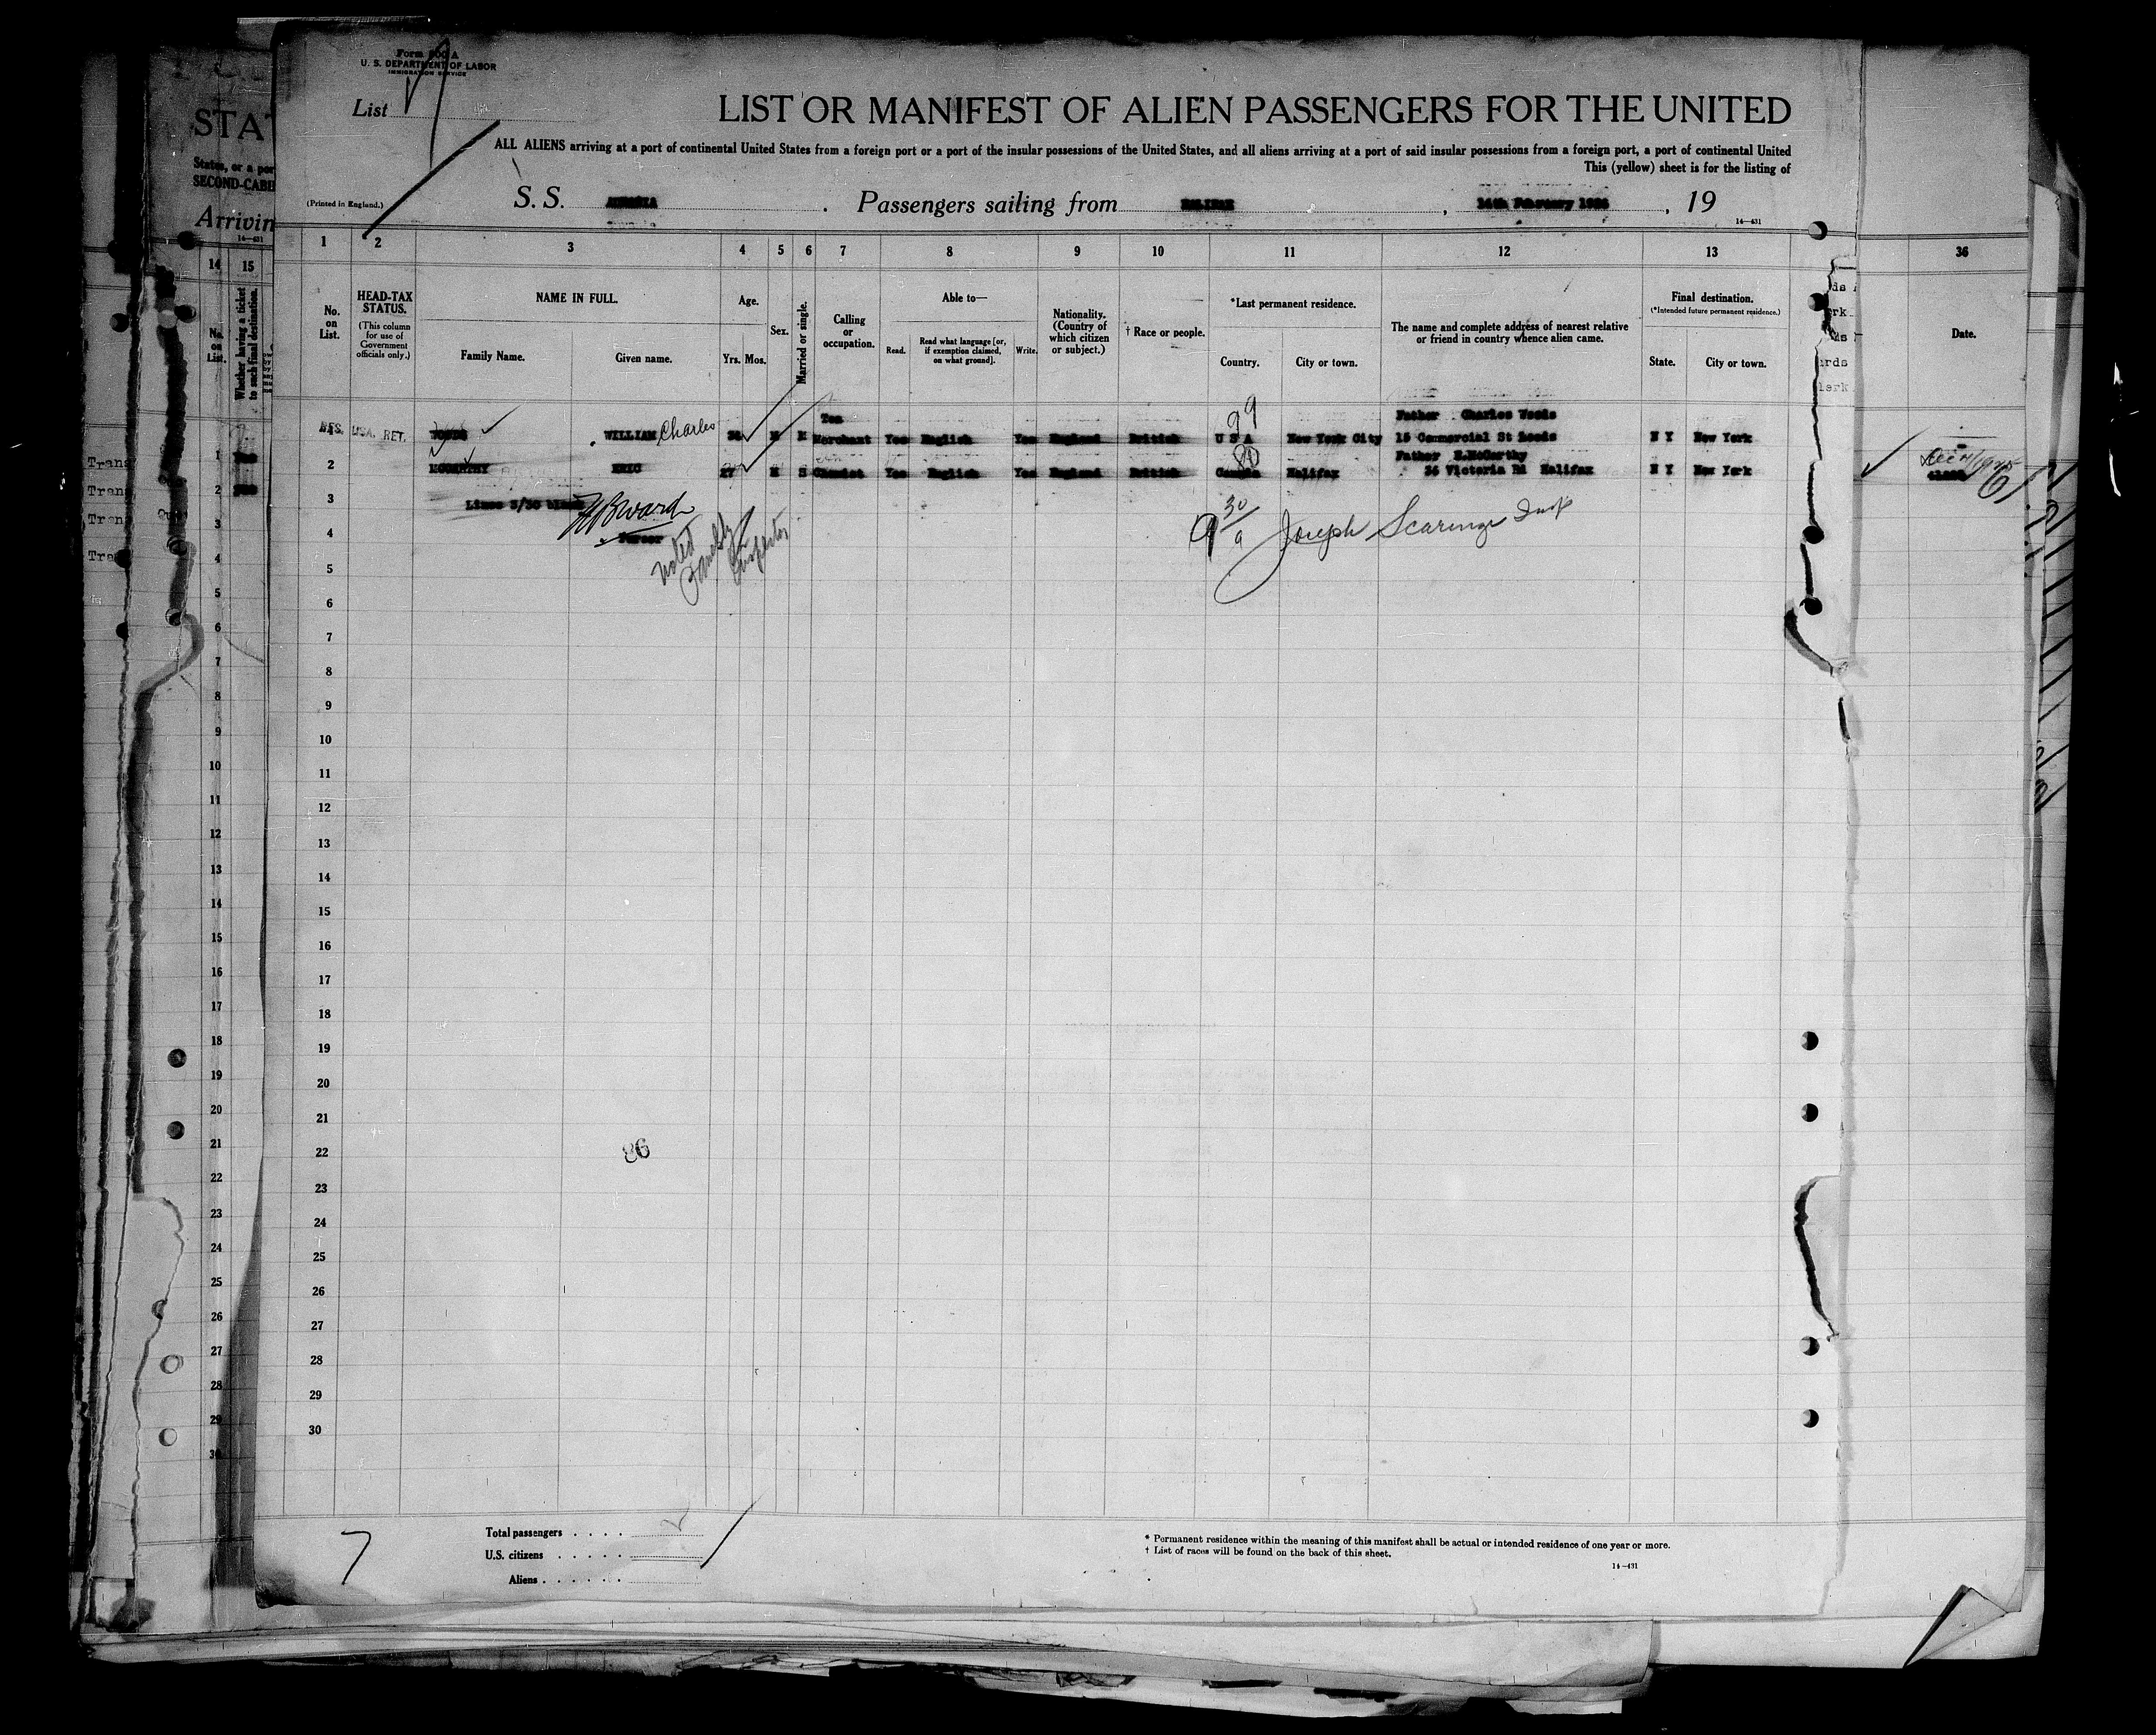 Form 500 A
U. S. DEPARTMENT OF LABOR
IMMIGRATION SERVICE
List
LIST OR MANIFEST OF ALIEN PASSENGERS FOR THE UNITED
ALL ALIENS arriving at a port of continental United States from a foreign port or a port of the insular possessions of the United States, and all aliens arriving at a port of said insular possessions from a foreign port, a port of continental United
This (yellow) sheet is for the listing of
(Printed in England.)
S. S. . Passengers sailing from HALIFAX , 14th February 1926 , 19
14—431
STAT
States, or a por
SECOND-CABI
Arrivin
14—431
1 2 3 4 5 6 7 8 9 10 11 12 13
14 15
36
No. on List.
HEAD-TAX STATUS.
(This column for use of Government officials only.)
NAME IN FULL.
Family Name.
Given name.
Age.
Yrs. Mos.
Sex.
Married or single.
Calling or occupation.
Able to—
Read.
Read what language [or, if exemption claimed, on what ground].
Write.
Nationality. (Country of which citizen or subject.)
† Race or people.
*Last permanent residence.
Country.
City or town.
The name and complete address of nearest relative or friend in country whence alien came.
Final destination.
(*Intended future permanent residence.)
State.
City or town.
No. on List.
Whether having a ticket to such final destination.
Date.
99
Tea
Father Charles Woods
1 USA. RET. WOODS WILLIAM Charles M M Merchant Yes English Yes England British U S A New York City 15 Commercial St Leeds N Y New York
80
Father E.McCarthy
2 MCCARTHY ERIC 27 M S Chemist Yes English Yes England British Canada Halifax 36 Victoria Rd Halifax N Y New York
3 Lines 3/30 blank
4 Purser
9 30/a Joseph Scaringe Insp
noted
Family
Inspector
5
6
7
8
9
10
11
12
13
14
15
16
17
18
19
20
21
22
86
23
24
25
26
27
28
29
30
7
Total passengers . . . . 2
U.S. citizens . . . . .
Aliens . . . . . .
* Permanent residence within the meaning of this manifest shall be actual or intended residence of one year or more.
† List of races will be found on the back of this sheet.
14—431